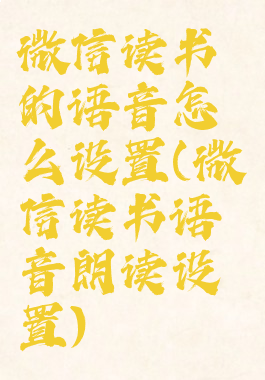 微信读书
的语音怎
么设置(微
信读书语
音朗读设
置)